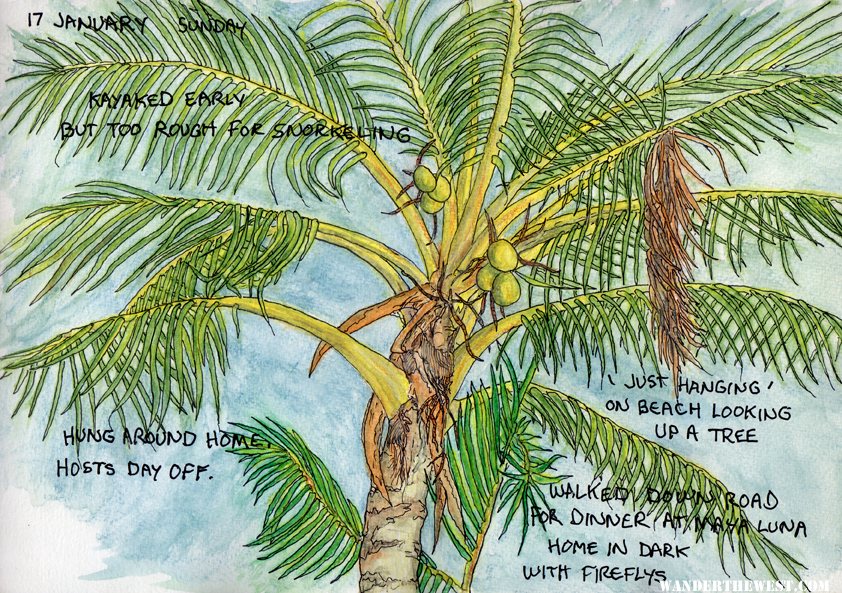 17 JANUARY SUNDAY
KAYAKED EARLY
BUT TOO ROUGH FOR SNORKELING
'JUST HANGING'
ON BEACH LOOKING
UP A TREE
HUNG AROUND HOME.
HOSTS DAY OFF.
WALKED DOWN ROAD
FOR DINNER AT MAYA LUNA
HOME IN DARK
WITH FIREFLYS
WANDERTHEWEST.COM